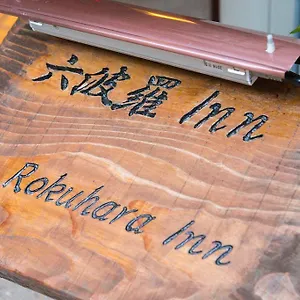 六波羅 Inn
Rokuhara Inn